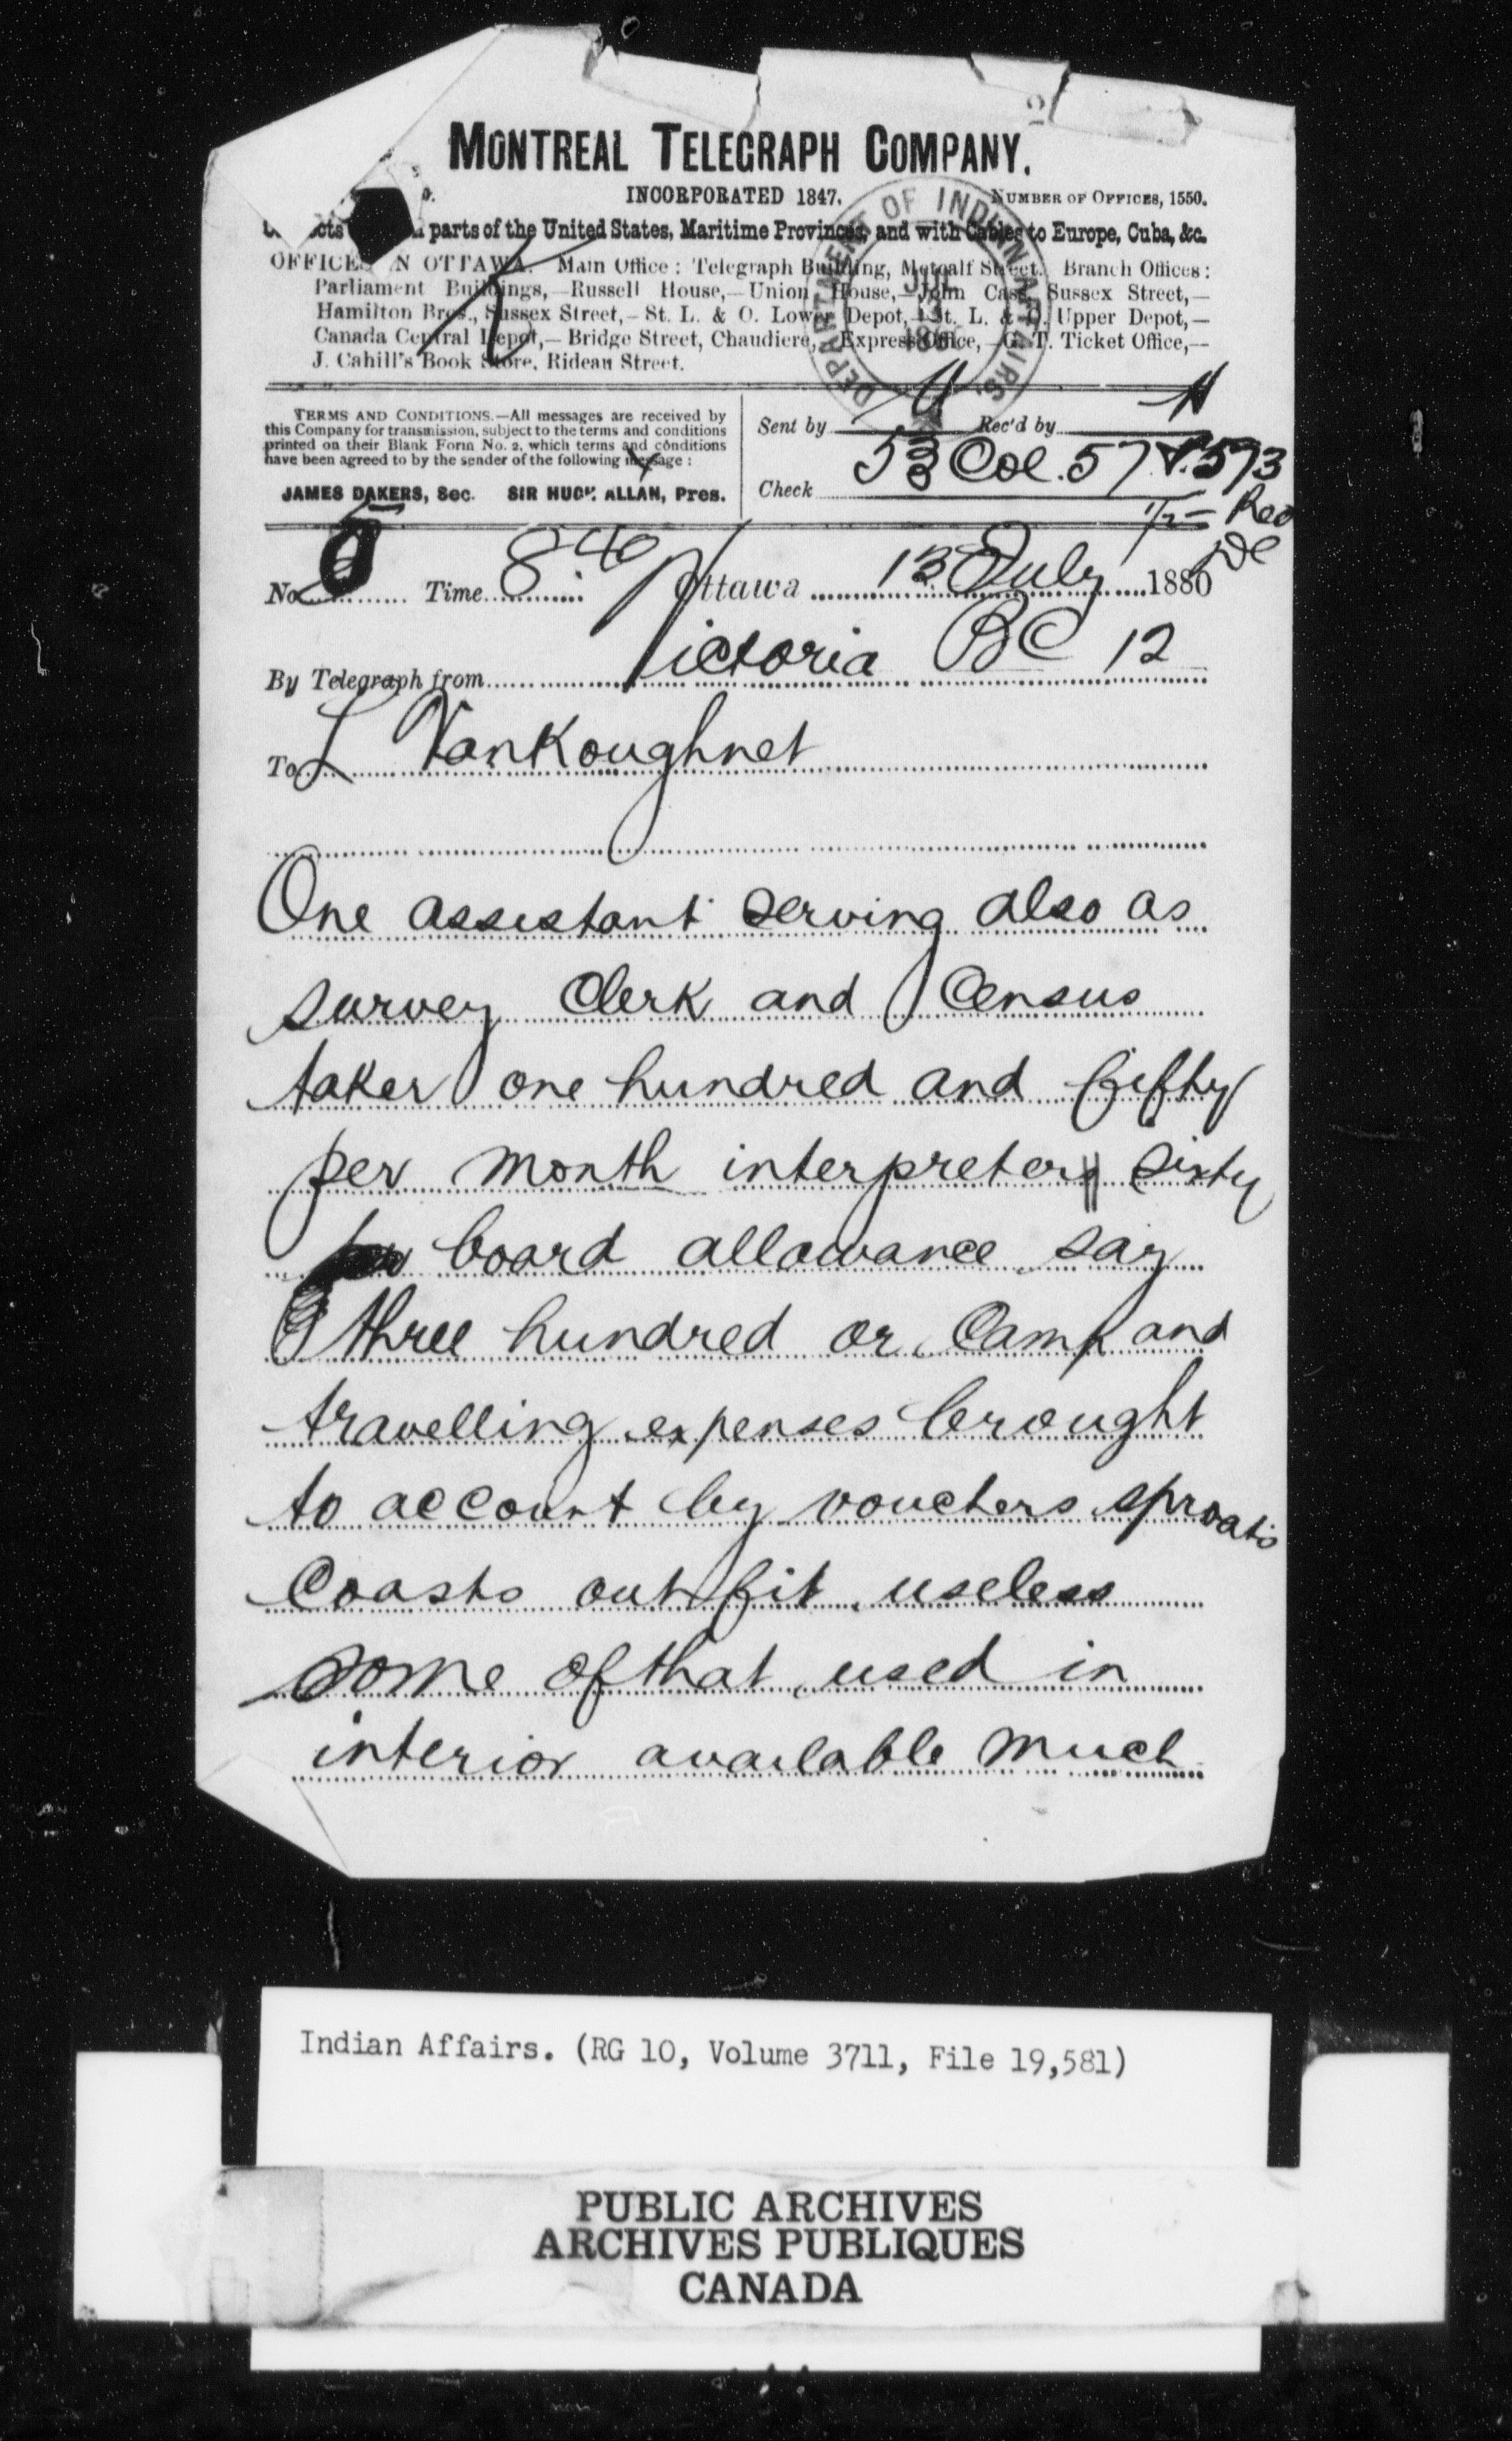 MONTREAL TELEGRAPH COMPANY.
INCORPORATED 1847. NUMBER OF OFFICES, 1550.
parts of the United States, Maritime Provinces, and with Cables to Europe, Cuba, &c.
OFFICES IN OTTAWA. Main Office: Telegraph Building, Metcalf Street. Branch Offices:
Parliament Buildings,—Russell House,—Union House,—John Cass, Sussex Street,—
Hamilton Bros., Sussex Street,—St. L. & O. Lower Depot,—St. L. & O. Upper Depot,—
Canada Central Depot,—Bridge Street, Chaudiere,—Express Office,—G. T. Ticket Office,—
J. Cahill's Book Store, Rideau Street.
DEPARTMENT OF INDIAN AFFAIRS.
JUL 13
TERMS AND CONDITIONS.—All messages are received by
this Company for transmission, subject to the terms and conditions
printed on their Blank Form No. 2, which terms and conditions
have been agreed to by the sender of the following message:
JAMES DAKERS, Sec. SIR HUGH ALLAN, Pres.
Sent by Rec'd by
Check 53 Col. 57
No. Time 8:40 Ottawa 13 July 1880
By Telegraph from Victoria BC 12
To L VanKoughnet
One assistant serving also as
survey Clerk and Census
taker one hundred and fifty
per month interpreter sixty
board allowance say
three hundred or Camp and
travelling expenses brought
to account by vouchers sproats
Coasts outfit useless
some of that used in
interior available much
Indian Affairs. (RG 10, Volume 3711, File 19,581)
PUBLIC ARCHIVES
ARCHIVES PUBLIQUES
CANADA